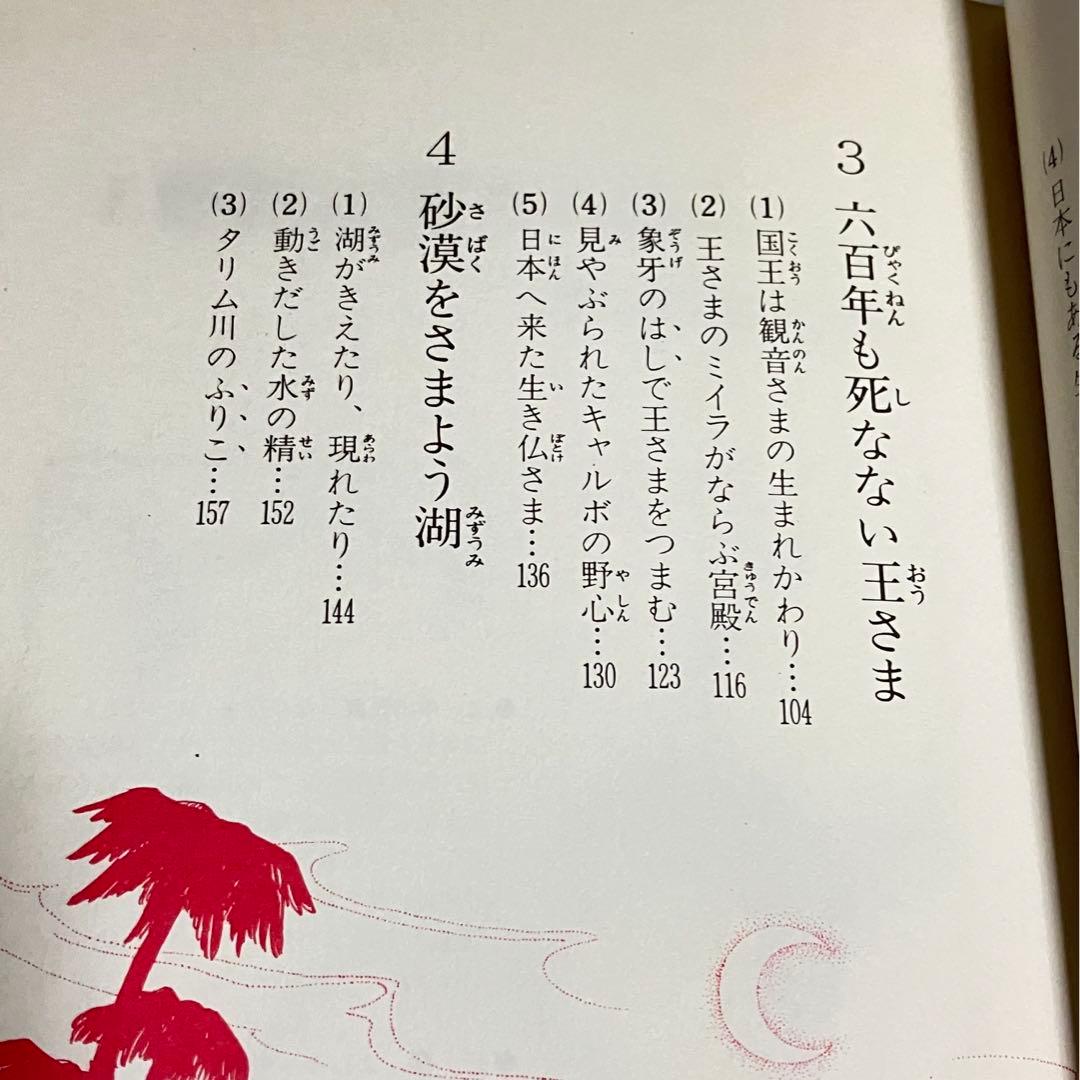 (4) 日本にもある
3 六百年も死なない王さま
(1) 国王は観音さまの生まれかわり…104
(2) 王さまのミイラがならぶ宮殿…116
(3) 象牙のはしで王さまをつまむ…123
(4) 見やぶられたキャルボの野心…130
(5) 日本へ来た生き仏さま…136
4 砂漠をさまよう湖
(1) 湖がきえたり、現れたり…144
(2) 動きだした水の精…152
(3) タリム川のふりこ…157